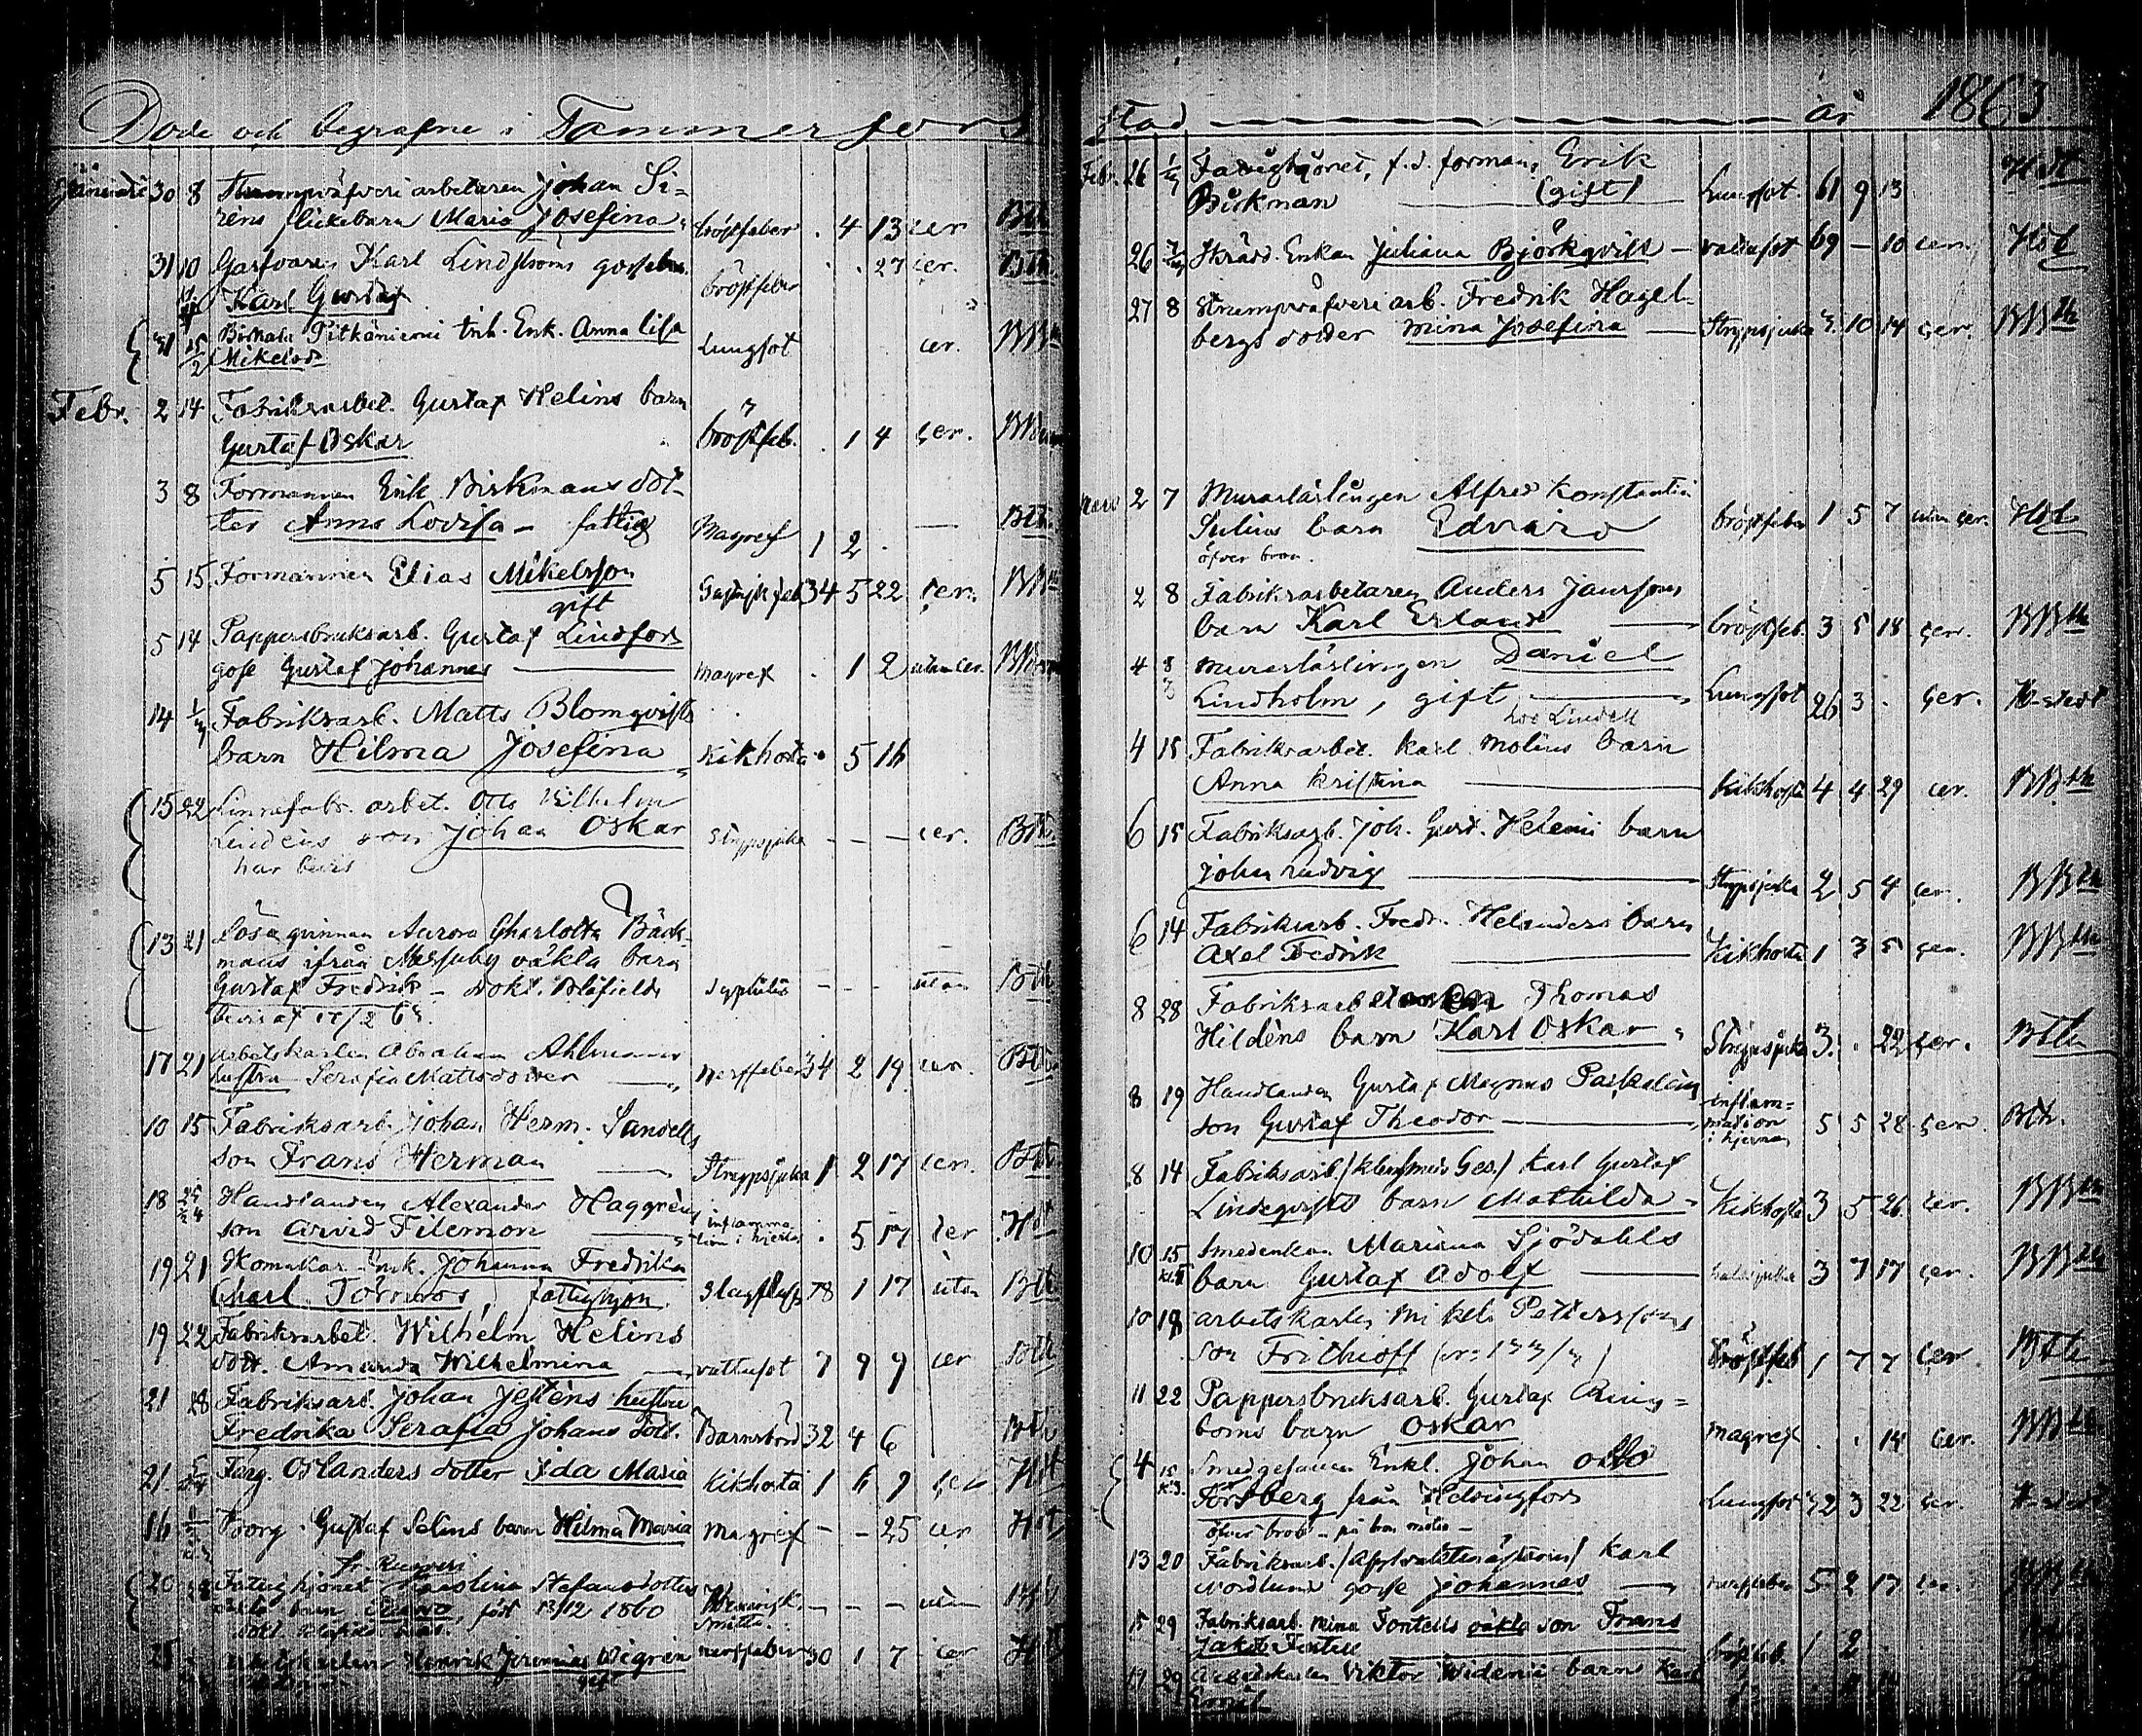 Döde och begrafne i Tammerfors
Januarii 30 8 Strumpväfveri arbetaren Johan Si=
réns flickebarn Maria Josefina bröstfeber . 4 13 cer Bth
31 10 Garfvaren Karl Lindströms gossebarn
Karl Gustaf bröstfeber . . 27 cer. Bth
31 15/2 Birkala Pitkäniemi inh. Enk. Anna Lisa
Mikelsdr Lungsot cer.
Febr. 2 14 Fabriksarbet. Gustaf Helins barn
Gustaf Oskar bröstfeb. . 1 4 cer.
3 8 Formannen Erik Birkmans dot-
ter Anna Lovisa — fattig Magref 1 2 . — Bth
5 15 Formannen Elias Mikelsson
gift 34 5 22 cer.
5 14 Pappersbruksarb. Gustaf Lindfors
gosse Gustaf Johannes magref . 1 2 utan cer.
14 Fabriksarb. Matts Blomqvists
barn Hilma Josefina Kikhosta . 5 16
15 22 Linnefabr. arbet. Otto Vilhelm
Lindéns son Johan Oskar Strypsjuka — — — cer. Bth
har bevis
13 21 Lösa qvinnan Aurora Charlotta Bäck-
mans ifrån Messuby oäkta barn
Gustaf Fredrik — Dokt. Blåfields syphilis — — — utan Bth
bevis af
17 21 Arbetskarlen Abraham Ahlmans
hustru Serafia Mattsdotter nerffeber 34 2 19 cer. Bth
10 15 Fabriksarb. Johan Herm. Sandells
son Frans Herman Strypsjuka 1 2 17 cer. Bth
18 Handlanden Alexander Haggréns
son Arvid Filemon inflamma-
tion i hjertat . 5 17 cer Hdt
19 21 Skomakar Enk. Johanna Fredrika
Charl. Törnroos, fattighjon. Slagfluss 78 1 17 utan Bth
19 22 Fabriksarbet. Wilhelm Helins
dott. Amanda Wilhelmina vattusot 7 9 9 cer Bth
21 28 Fabriksarb. Johan Jerténs hustru
Fredrika Serafia Johans dott. Barnsbörd 32 4 6 Bth
21 Färg. Oslanders dotter Ida Maria Kikhosta 1 6 9 cer Hdt
16 Borg. Gustaf Selins barn Hilma Maria Magref — — 25 cer Hdt
20 Fattighjonet Kaisolina Stefansdotters
oäkta barn född 13/12 1860 Venerisk. — — — utan
smitta
25 Arbetskarlen Henrik Jeremias Wegrén nerffeber 30 1 7 cer Hdt
gift
stad år 1863
Febr. 26 Fattighjonet, f.d. forman, Erik
Birkman (gift) Lungsot. 61 9 13 Hdt
26 Skrädd. Enkan Juliana Björkqvist — vattusot 69 — 10 cer. Hdt
27 8 Strumpväfveri arb. Fredrik Hagel-
bergs dotter Mina Josefina — Strypsjuka 3. 10 14 cer.
Mars 2 7 Murarlärlingen Alfred Konstantin
Julius barn Edvard bröstfeber 1 5 7 utan cer. Hdt
öfver bron
2 8 Fabriksarbetaren Anders Janssons
barn Karl Erland bröstfeb. 3 5 18 cer.
4 8 Murarlärlingen Daniel
Lindholm, gift — Lungsot 26 3 . cer. H-stedt
hos Lindell
4 15 Fabriksarbet. Karl Molins barn
Anna Kristina Kikhosta 4 4 29 cer.
6 15 Fabriksarb. Joh. Gust. Helenii barn
Johan Ludvig Strypsjuka 2 5 4 cer.
6 14 Fabriksarb. Fredr. Helanders barn
Axel Fredrik Kikhosta 1 3 5 cer.
8 28 Fabriksarbetaren Thomas
Hildéns barn Karl Oskar Strypsjuka 3. . 22 cer. Bth
8 19 Handlanden Gustaf Magnus Paskaléns
son Gustaf Theodor inflam=
mation
i hjernan 5 5 28 cer. Bth.
8 14 Fabriksarb. /Klensmeds Ges./ Karl Gustaf
Lindeqvists barn Mathilda Kikhosta 3 5 26 cer.
10 15 Smedenkan Mariana Sjödahls
barn Gustaf Adolf 3 7 17 cer.
10 18 arbetskarlen Mikel Petterssons
son Frithioff bröstfeb 1 7 7 cer. Bth
11 22 Pappersbruksarb. Gustaf Ring=
boms barn Oskar magref . . 14 cer.
4 15 Smedgesällen Enkl. Johan Otto
Forsberg från Helsingfors Lungsot 32 3 22 cer. H-stedt
öfver bron — på bron möter —
13 20 Fabriksarb. Karl
Nordlunds gosse Johannes 5 2 17 cer.
15 29 Fabriksarb. Mina Fontells oäkta son Frans
Jakob Fontell bröstfeb. 1 2
17 29 Arbetskarlen Viktor Widenii barn Karl
Emil